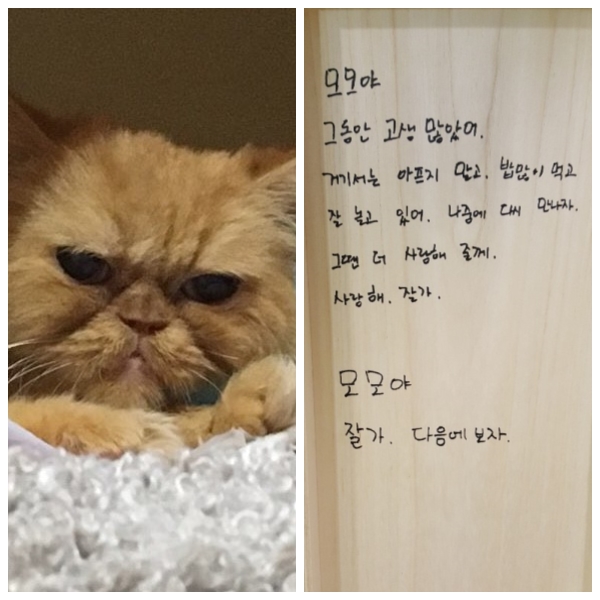 모모야
그동안 고생 많았어.
거기서는 아프지 말고. 밥많이 먹고
잘 놀고 있어. 나중에 다시 만나자.
그땐 더 사랑해 줄께.
사랑해. 잘가.
모모야
잘가. 다음에 보자.